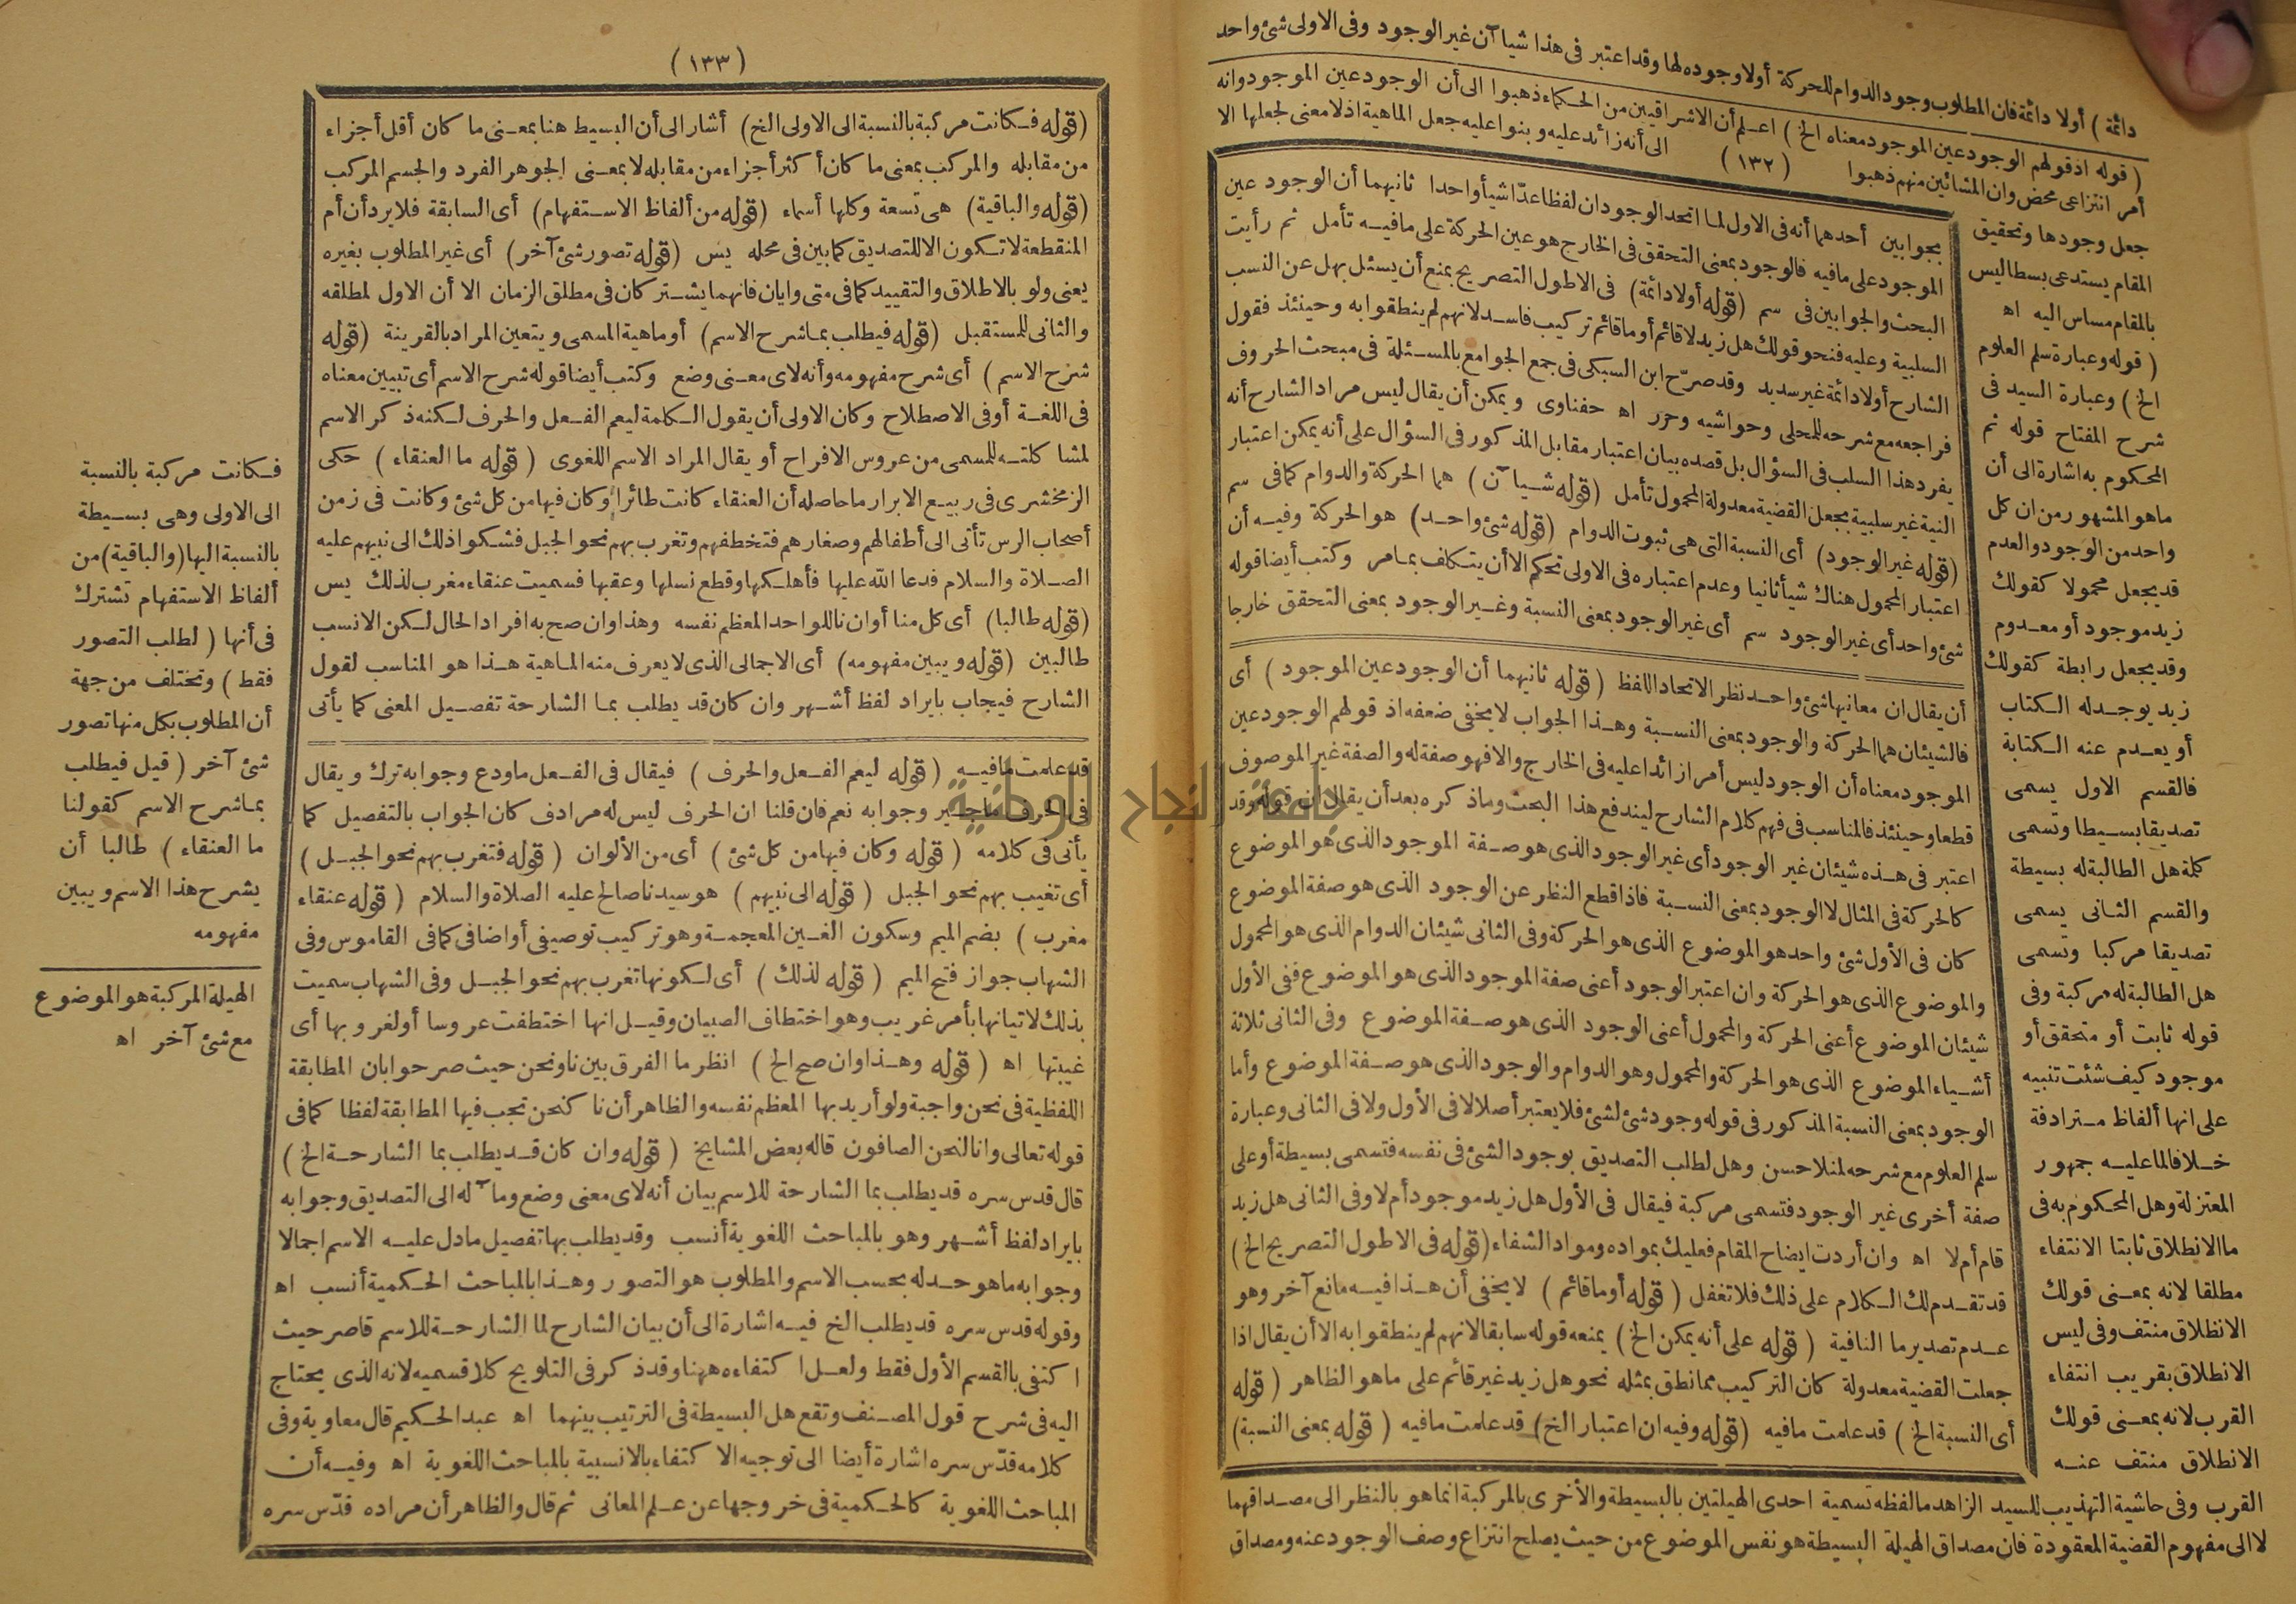 دائمة ) أولا دائمة فان المطلوب وجود الدوام للحركة أولا وجوده لها وقد اعتبر فى هذا شيا آن غير الوجود وفى الاولى شئ واحد
( قوله اذ قولهم الوجود عين الموجود معناه الخ ) اعلم أن الاشراقيين من الحكماء ذهبوا الى أن الوجود عين الموجود وانه
أمر انتزاعى محض وان المشائين منهم ذهبوا
(١٣٢)
الى أنه زائد عليه وبنوا عليه جعل الماهية اذ لا معنى لجعلها الا
جعل وجودها وتحقيق
المقام يستدعى بسطا ليس
بالمقام مساس اليه اه
( قوله وعبارة سلم العلوم
الخ ) وعبارة السيد فى
شرح المفتاح قوله ثم
المحكوم به اشارة الى أن
ما هو المشهور من ان كل
واحد من الوجود والعدم
قد يجعل محمولا كقولك
زيد موجود أو معدوم
وقد يجعل رابطة كقولك
زيد يوجد له الكتاب
أو يعدم عنه الكتابة
فالقسم الاول يسمى
تصديقا بسيطا وتسمى
كلمة هل الطالبة له بسيطة
والقسم الثانى يسمى
تصديقا مركبا وتسمى
هل الطالبة له مركبة وفى
قوله ثابت أو متحقق أو
موجود كيف شئت تنبيه
على انها ألفاظ مترادفة
خلافا لما عليه جمهور
المعتزلة وهل المحكوم به فى
ما الانطلاق ثابتا الانتفاء
مطلقا لانه بمعنى قولك
الانطلاق منتف وفى ليس
الانطلاق بقريب انتفاء
القرب لانه بمعنى قولك
الانطلاق منتف عنه
بجوابين أحدهما أنه فى الاول لما اتحد الوجودان لفظا عدّا شيأ واحدا ثانيهما أن الوجود عين
الموجود على ما فيه فالوجود بمعنى التحقق فى الخارج هو عين الحركة على ما فيه تأمل ثم رأيت
البحث والجوابين فى سم (قوله أولا دائمة) فى الاطول التصريح بمنع أن يسئل بهل عن النسب
السلبية وعليه فنحو قولك هل زيد لا قائم أو ما قائم تركيب فاسد لانهم لم ينطقوا به وحينئذ فقول
الشارح أولا دائمة غير سديد وقد صرّح ابن السبكى فى جمع الجوامع بالمسئلة فى مبحث الحروف
فراجعه مع شرحه للمحلى وحواشيه وحرر اه حفناوى ويمكن أن يقال ليس مراد الشارح أنه
يفرد هذا السلب فى السؤال بل قصده بيان اعتبار مقابل المذكور فى السؤال على أنه يمكن اعتبار
النية غير سلبية بجعل القضية معدولة المحمول تأمل (قوله شيا آن) هما الحركة والدوام كما فى سم
(قوله غير الوجود) أى النسبة التى هى ثبوت الدوام (قوله شئ واحد) هو الحركة وفيه أن
اعتبار المحمول هناك شيأ ثانيا وعدم اعتباره فى الاولى تحكم الا أن يتكلف بما مر وكتب أيضا قوله
شئ واحد أى غير الوجود سم أى غير الوجود بمعنى النسبة وغير الوجود بمعنى التحقق خارجا
أن يقال ان معانيها شئ واحد نظر الاتحاد اللفظ ( قوله ثانيهما أن الوجود عين الموجود ) أى
فالشيئان هما الحركة والوجود بمعنى النسبة وهذا الجواب لا يخفى ضعفه اذ قولهم الوجود عين
الموجود معناه أن الوجود ليس أمرا زائدا عليه فى الخارج والا فهو صفة له والصفة غير الموصوف
قطعا وحينئذ فالمناسب فى فهم كلام الشارح ليندفع هذا البحث وما ذكره بعد أن يقال ان قوله وقد
اعتبر فى هذه شيئان غير الوجود أى غير الوجود الذى هو صفة الموجود الذى هو الموضوع
كالحركة فى المثال لا الوجود بمعنى النسبة فاذا قطع النظر عن الوجود الذى هو صفة الموضوع
كان فى الأول شئ واحد هو الموضوع الذى هو الحركة وفى الثانى شيئان الدوام الذى هو المحمول
والموضوع الذى هو الحركة وان اعتبر الوجود أعنى صفة الموجود الذى هو الموضوع ففى الأول
شيئان الموضوع أعنى الحركة والمحمول أعنى الوجود الذى هو صفة الموضوع وفى الثانى ثلاثة
أشياء الموضوع الذى هو الحركة والمحمول وهو الدوام والوجود الذى هو صفة الموضوع وأما
الوجود بمعنى النسبة المذكور فى قوله وجود شئ لشئ فلا يعتبر أصلا لا فى الأول ولا فى الثانى وعبارة
سلم العلوم مع شرحه لمنلا حسن وهل لطلب التصديق بوجود الشئ فى نفسه فتسمى بسيطة أو على
صفة أخرى غير الوجود فتسمى مركبة فيقال فى الأول هل زيد موجود أم لا وفى الثانى هل زيد
قام أم لا اه وان أردت ايضاح المقام فعليك بمواده ومواد الشفاء (قوله فى الاطول التصريح الخ)
قد تقدم لك الكلام على ذلك فلا تغفل ( قوله أو ما قائم ) لا يخفى أن هذا فيه مانع آخر وهو
عدم تصدير ما النافية ( قوله على أنه يمكن الخ ) يمنعه قوله سابقا لانهم لم ينطقوا به الا أن يقال اذا
جعلت القضية معدولة كان التركيب مما نطق بمثله نحو هل زيد غير قائم على ما هو الظاهر ( قوله
أى النسبة الخ ) قد علمت ما فيه (قوله وفيه ان اعتبار الخ) قد علمت ما فيه ( قوله بمعنى النسبة)
القرب وفى حاشية التهذيب للسيد الزاهد ما لفظه تسمية احدى الهيلتين بالبسيطة والأخرى بالمركبة انما هو بالنظر الى مصداقهما
لا الى مفهوم القضية المعقودة فان مصداق الهيلة البسيطة هو نفس الموضوع من حيث يصلح انتزاع وصف الوجود عنه ومصداق
(١٣٣)
(قوله فكانت مركبة بالنسبة الى الاولى الخ) أشار الى أن البسيط هنا بمعنى ما كان أقل أجزاء
من مقابله والمركب بمعنى ما كان أكثر أجزاء من مقابله لا بمعنى الجوهر الفرد والجسم المركب
(قوله والباقية) هى تسعة وكلها أسماء (قوله من ألفاظ الاستفهام) أى السابقة فلا يرد أن أم
المنقطعة لا تكون الا للتصديق كما بين فى محله يس (قوله تصور شئ آخر) أى غير المطلوب بغيره
يعنى ولو بالاطلاق والتقييد كما فى متى وايان فانهما يشتركان فى مطلق الزمان الا أن الاول لمطلقه
والثانى للمستقبل (قوله فيطلب بما شرح الاسم) أو ماهية المسمى ويتعين المراد بالقرينة (قوله
شرح الاسم) أى شرح مفهومه وأنه لاى معنى وضع وكتب أيضا قوله شرح الاسم أى تبيين معناه
فى اللغة أو فى الاصطلاح وكان الاولى أن يقول الكلمة ليعم الفعل والحرف لكنه ذكر الاسم
لمشاكلته للمسمى من عروس الافراح أو يقال المراد الاسم اللغوى ( قوله ما العنقاء ) حكى
الزمخشرى فى ربيع الابرار ما حاصله أن العنقاء كانت طائرا وكان فيها من كل شئ وكانت فى زمن
أصحاب الرس تأتى الى أطفالهم وصغارهم فتخطفهم وتغرب بهم نحو الجبل فشكوا ذلك الى نبيهم عليه
الصلاة والسلام فدعا الله عليها فأهلكها وقطع نسلها وعقبها فسميت عنقاء مغرب لذلك يس
(قوله طالبا) أى كل منا أو ان نا للواحد المعظم نفسه وهذا وان صح به افراد الحال لكن الانسب
طالبين (قوله ويبين مفهومه) أى الاجمالى الذى لا يعرف منه الماهية هذا هو المناسب لقول
الشارح فيجاب بايراد لفظ أشهر وان كان قد يطلب بما الشارحة تفصيل المعنى كما يأتى
قد علمت ما فيه (قوله ليعم الفعل والحرف ) فيقال فى الفعل ما ودع وجوابه ترك ويقال
فى الحرف ما جير وجوابه نعم فان قلنا ان الحرف ليس له مرادف كان الجواب بالتفصيل كما
يأتى فى كلامه ( قوله وكان فيها من كل شئ ) أى من الألوان ( قوله فتغرب بهم نحو الجبل )
أى تغيب بهم نحو الجبل ( قوله الى نبيهم ) هو سيدنا صالح عليه الصلاة والسلام ( قوله عنقاء
مغرب ) بضم الميم وسكون الغين المعجمة وهو تركيب توصيفى أو اضافى كما فى القاموس وفى
الشهاب جواز فتح الميم ( قوله لذلك ) أى لكونها تغرب بهم نحو الجبل وفى الشهاب سميت
بذلك لاتيانها بأمر غريب وهو اختطاف الصبيان وقيل انها اختطفت عروسا أو لغروبها أى
غيبتها اه ( قوله وهذا وان صح الخ ) انظر ما الفرق بين نا ونحن حيث صرحوا بان المطابقة
اللفظية فى نحن واجبة ولو أريد بها المعظم نفسه والظاهر أن نا كنحن تجب فيها المطابقة لفظا كما فى
قوله تعالى وانا لنحن الصافون قاله بعض المشايخ ( قوله وان كان قد يطلب بما الشارحة الخ )
قال قدس سره قد يطلب بما الشارحة للاسم بيان أنه لاى معنى وضع ومآ له الى التصديق وجوابه
بايراد لفظ أشهر وهو بالمباحث اللغوية أنسب وقد يطلب بها تفصيل ما دل عليه الاسم اجمالا
وجوابه ما هو حد له بحسب الاسم والمطلوب هو التصور وهذا بالمباحث الحكمية أنسب اه
وقوله قدس سره قد يطلب الخ فيه اشارة الى أن بيان الشارح لما الشارحة للاسم قاصر حيث
اكتفى بالقسم الأول فقط ولعل اكتفاءه ههنا وقد ذكر فى التلويح كلا قسميه لانه الذى يحتاج
اليه فى شرح قول المصنف وتقع هل البسيطة فى الترتيب بينهما اه عبد الحكيم قال معاوية وفى
كلامه قدّس سره اشارة أيضا الى توجيه الاكتفاء بالانسبية بالمباحث اللغوية اه وفيه أن
المباحث اللغوية كالحكمية فى خروجها عن علم المعانى ثم قال والظاهر أن مراده قدّس سره
فكانت مركبة بالنسبة
الى الاولى وهى بسيطة
بالنسبة اليها (والباقية) من
ألفاظ الاستفهام تشترك
فى أنها ( لطلب التصور
فقط ) وتختلف من جهة
أن المطلوب بكل منها تصور
شئ آخر ( قيل فيطلب
بما شرح الاسم كقولنا
ما العنقاء ) طالبا أن
يشرح هذا الاسم ويبين
مفهومه
الهيلة المركبة هو الموضوع
مع شئ آخر اه
جامعة النجاح الوطنية